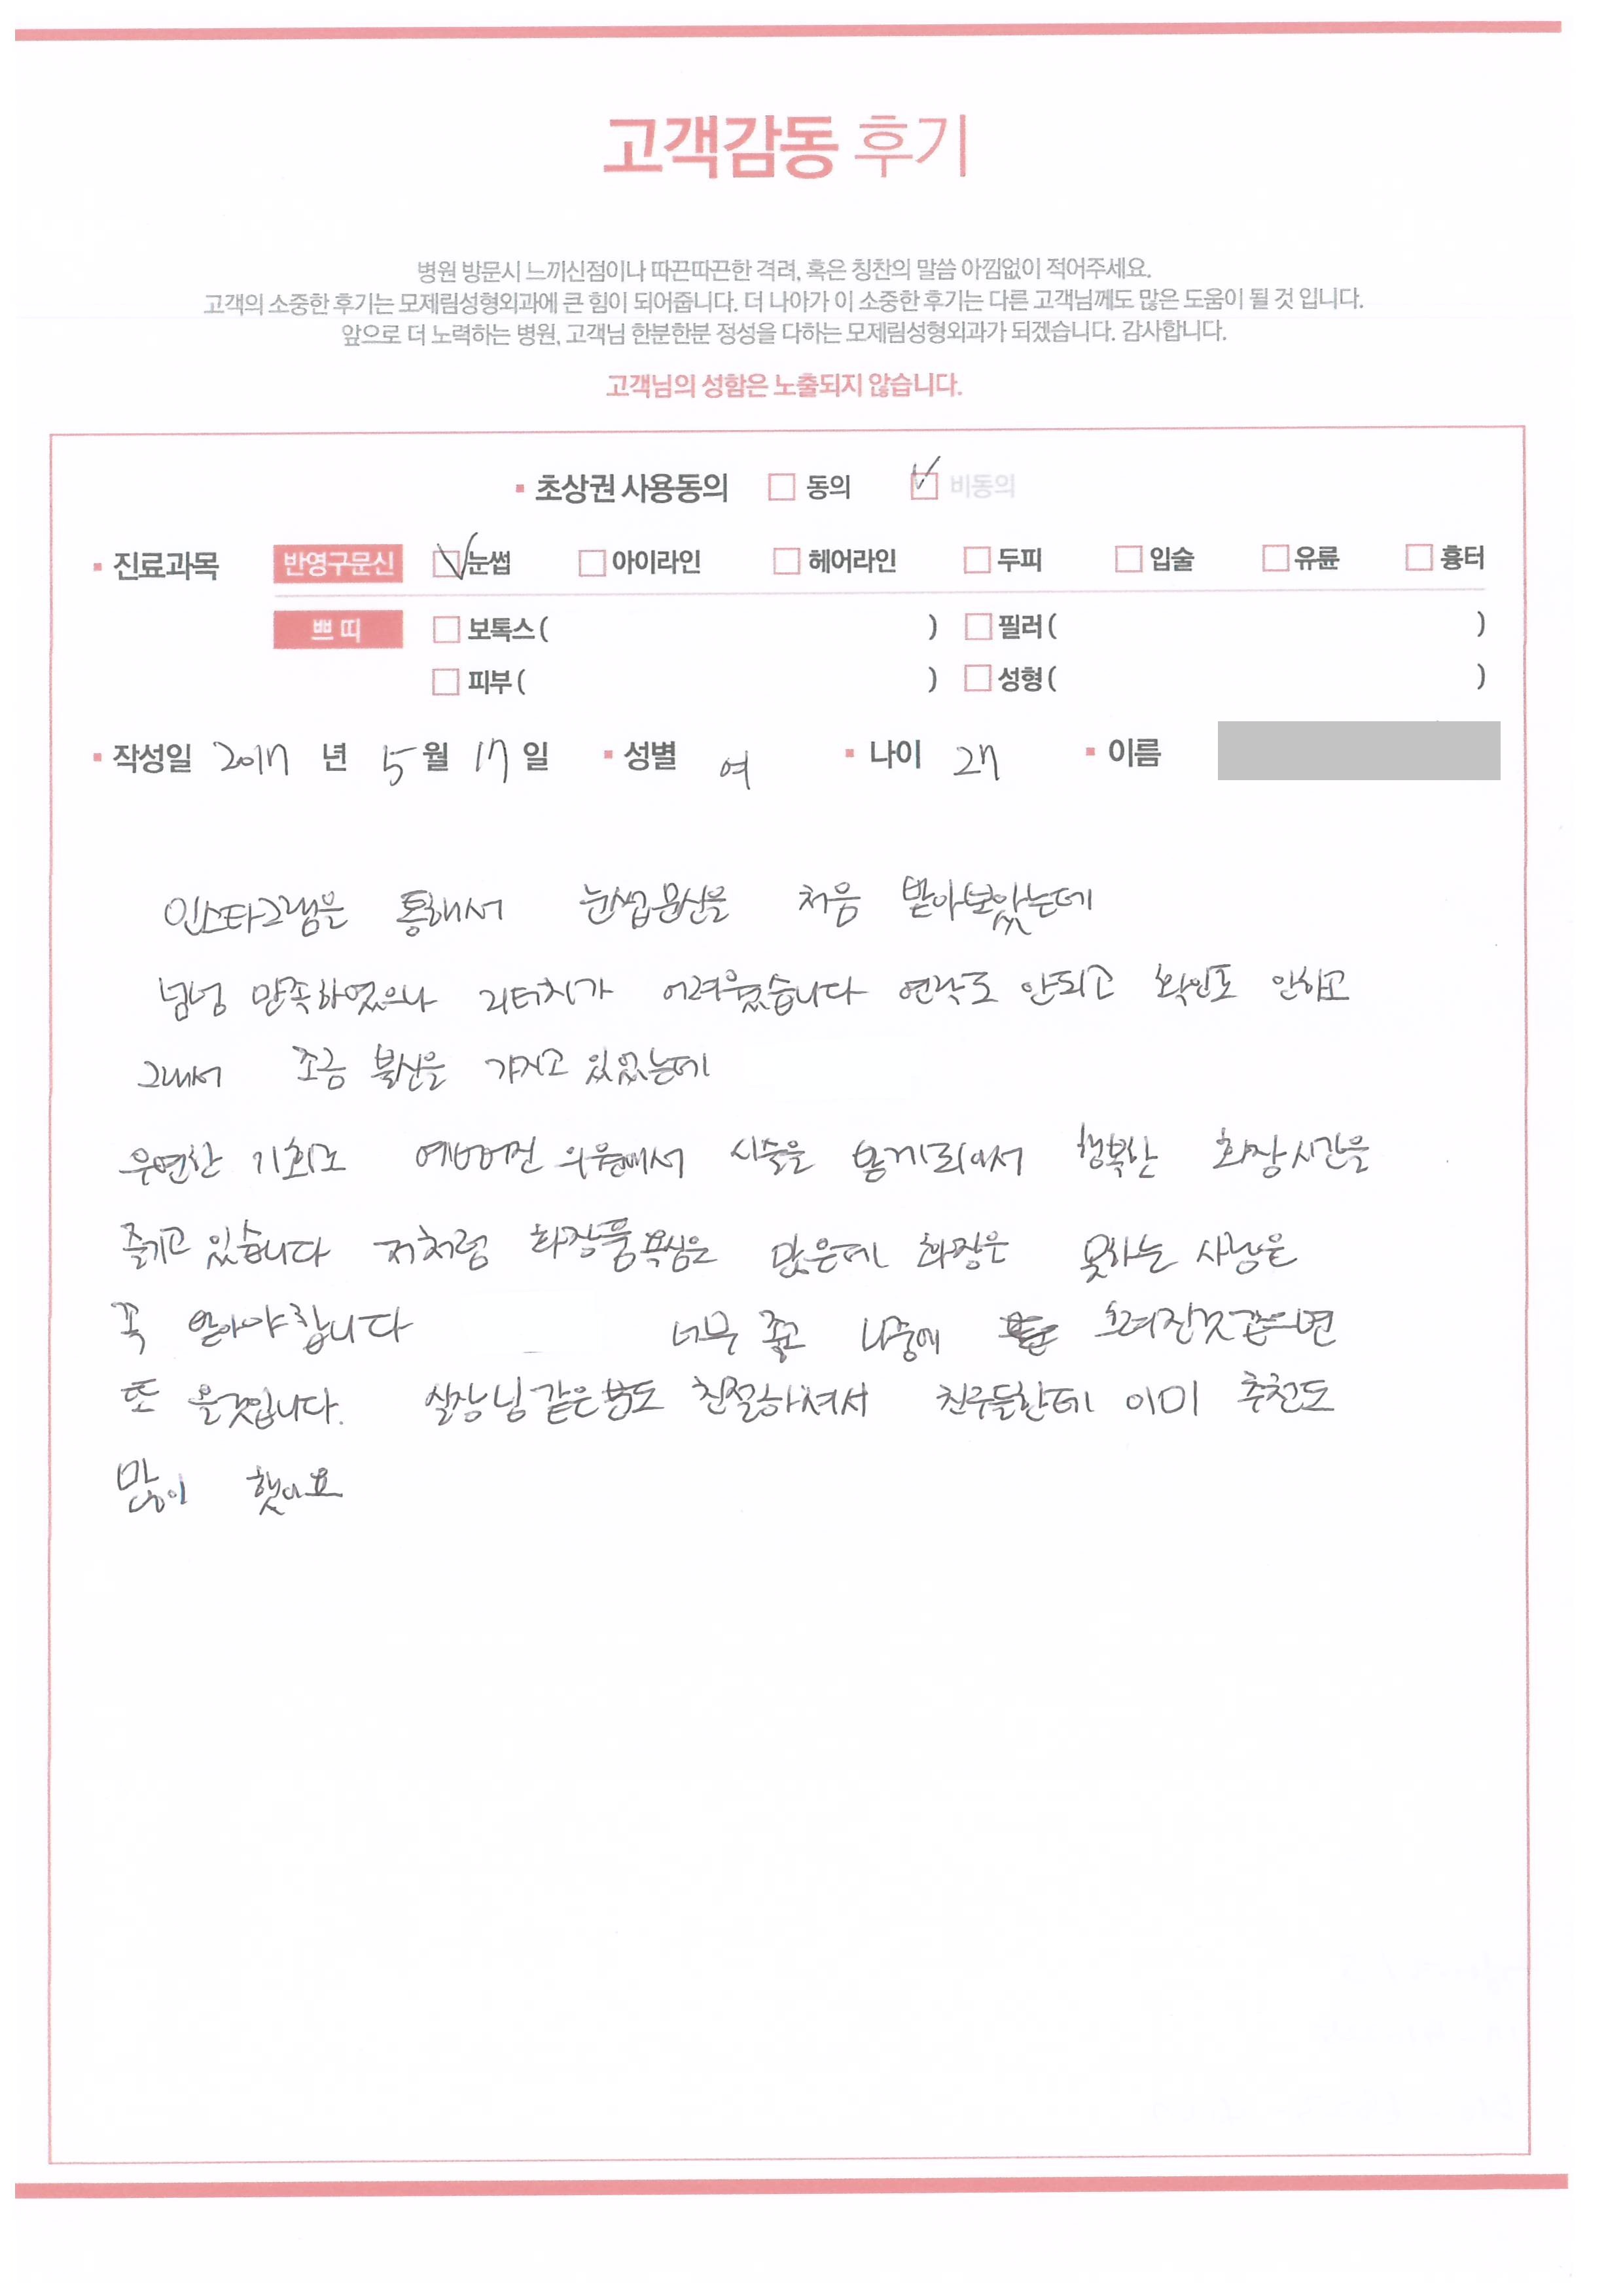 고객감동 후기
병원 방문시 느끼신점이나 따끈따끈한 격려, 혹은 칭찬의 말씀 아낌없이 적어주세요.
고객의 소중한 후기는 모제림성형외과에 큰 힘이 되어줍니다. 더 나아가 이 소중한 후기는 다른 고객님께도 많은 도움이 될 것 입니다.
앞으로 더 노력하는 병원, 고객님 한분한분 정성을 다하는 모제림성형외과가 되겠습니다. 감사합니다.
고객님의 성함은 노출되지 않습니다.
초상권 사용동의 동의 비동의
진료과목 반영구문신 눈썹 아이라인 헤어라인 두피 입술 유륜 흉터
쁘띠 보톡스 ( ) 필러 ( )
피부 ( ) 성형 ( )
작성일 2017 년 5 월 17 일 성별 여 나이 27 이름
인스타그램을 통해서 눈썹문신을 처음 받아보았는데
넘넘 만족하였으나 리터치가 어려웠습니다 연락도 안되고 확인도 안하고
그래서 조금 불신을 가지고 있었는데
우연찬 기회로 에버버전 의원에서 시술을 받게되어서 행복한 화장시간을
즐기고 있습니다 저처럼 화장품욕심은 많은데 화장은 못하는 사람은
꼭 받아야합니다 너무 좋고 나중에 흐려진것같으면
또 올것입니다. 실장님같은분도 친절하셔서 친구들한테 이미 추천도
많이 했어요